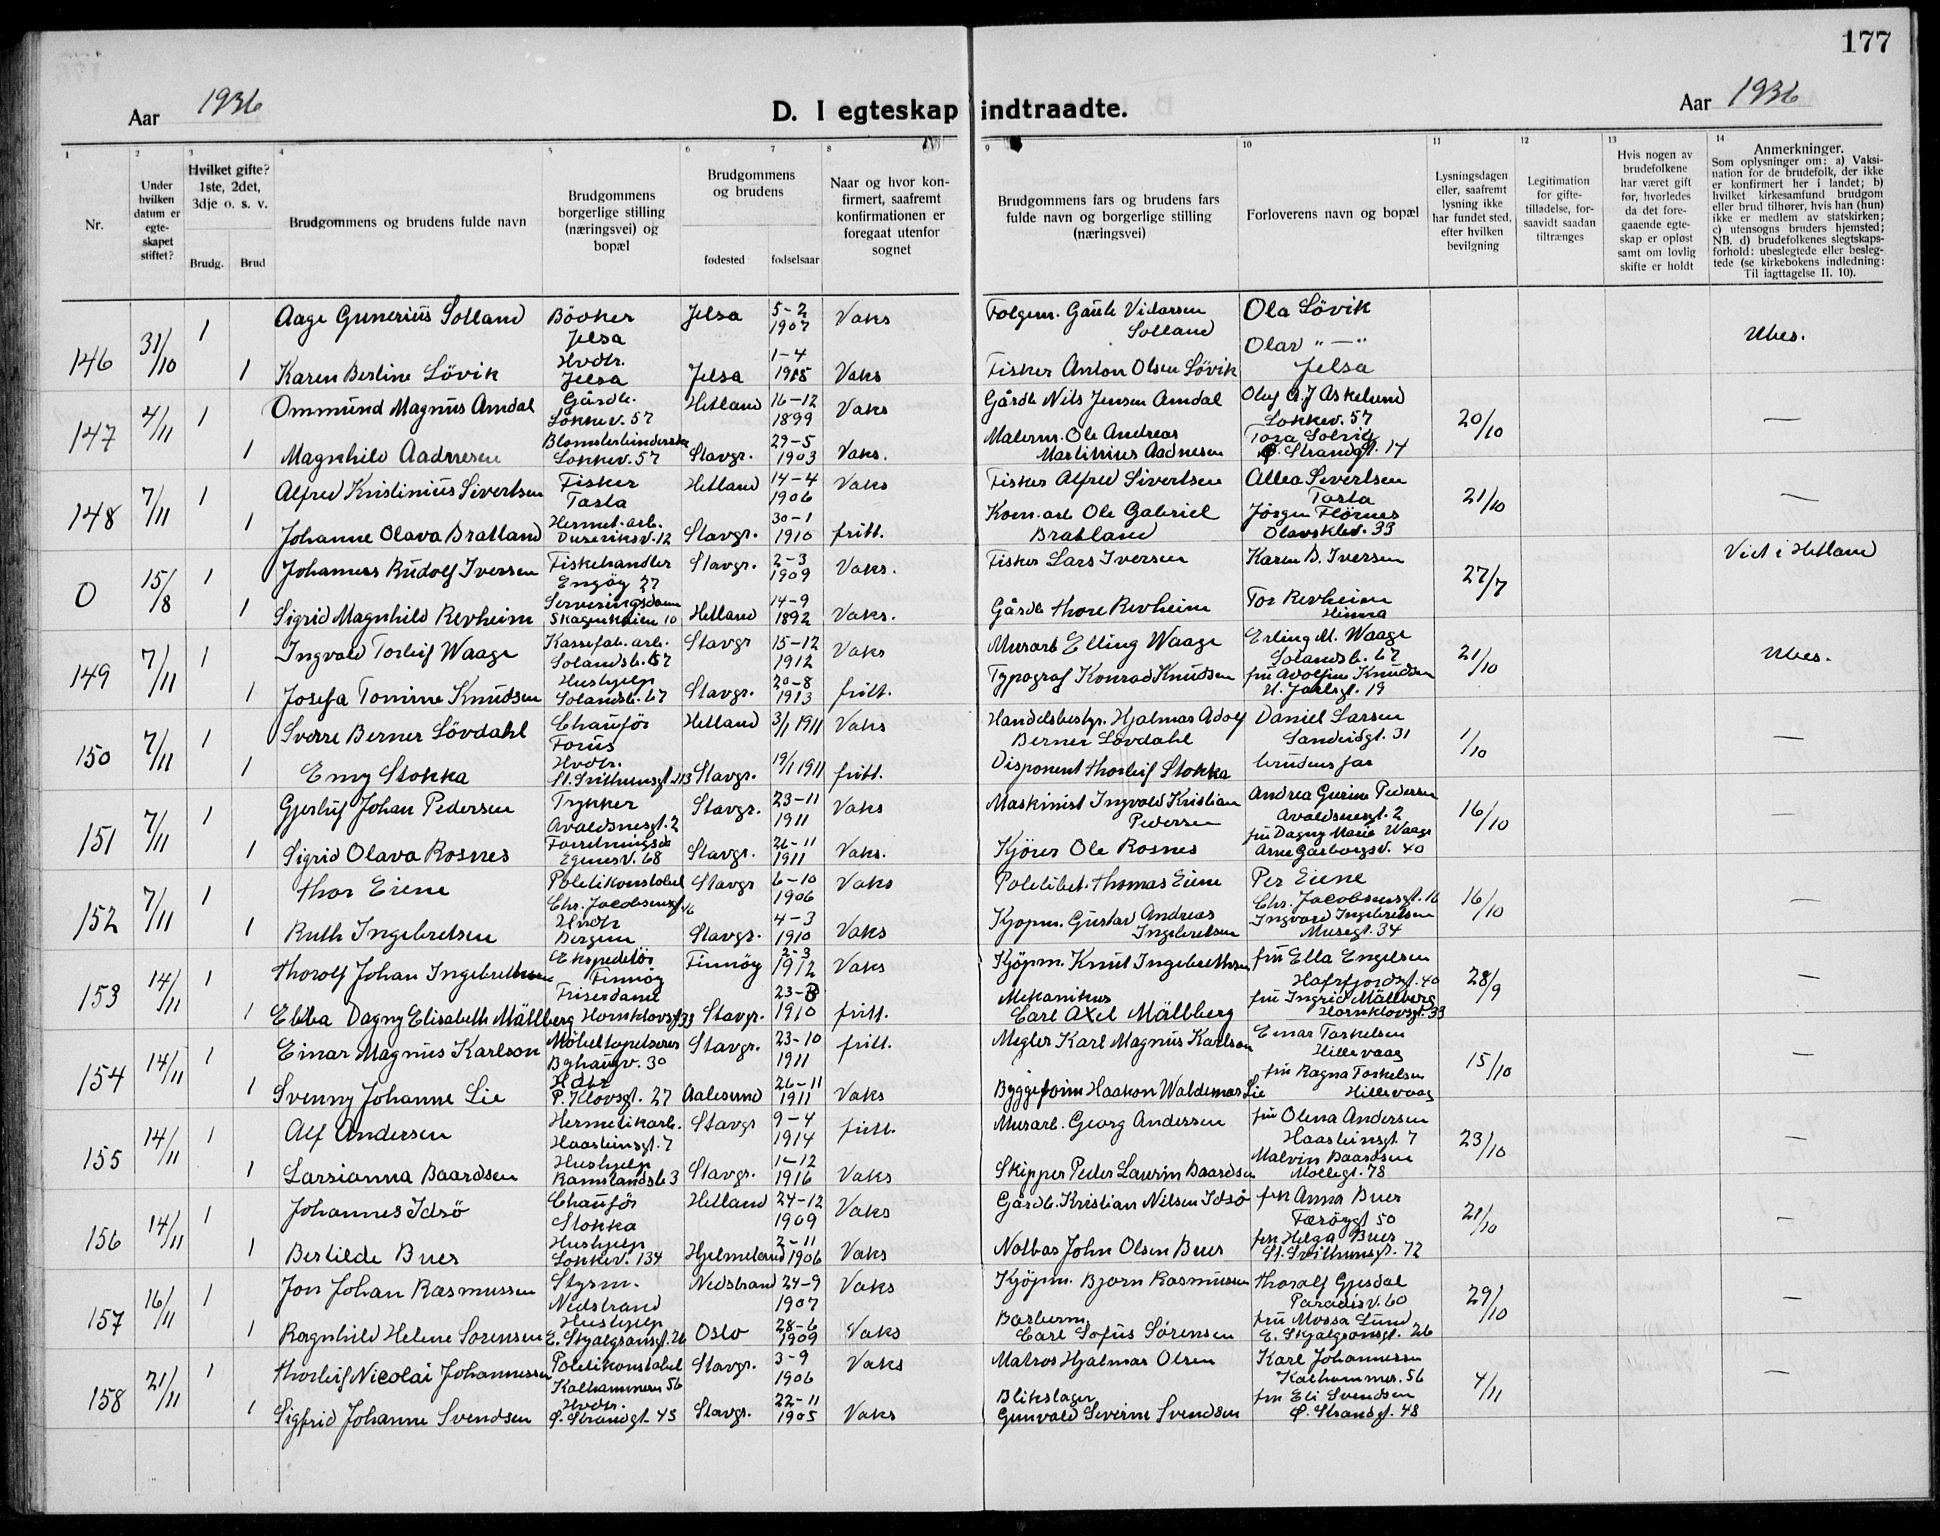 177
Aar 1936
D. I egteskap indtraadte.
Aar 1936
1 2 3 4 5 6 7 8 9 10 11 12 13 14
Nr.
Under hvilken datum er egte- skapet stiftet?
Hvilket gifte? 1ste, 2det, 3dje o. s. v.
Brudg. Brud
Brudgommens og brudens fulde navn
Brudgommens borgerlige stilling (næringsvei) og bopæl
Brudgommens og brudens
fødested fødselsaar
Naar og hvor kon- firmert, saafremt konfirmationen er foregaat utenfor sognet
Brudgommens fars og brudens fars fulde navn og borgerlige stilling (næringsvei)
Forloverens navn og bopæl
Lysningsdagen eller, saafremt lysning ikke har fundet sted, efter hvilken bevilgning
Legitimation for gifte- tilladelse, for- saavidt saadan tiltrænges
Hvis nogen av brudefolkene har været gift før, hvorledes da det fore- gaaende egte- skap er opløst samt om lovlig skifte er holdt
Anmerkninger.
Som oplysninger om: a) Vaksi- nation for de brudefolk, der ikke er konfirmert her i landet; b) hvilket kirkesamfund brudgom eller brud tilhører, hvis han (hun) ikke er medlem av statskirken; c) utensogns bruders hjemsted; NB. d) brudefolkenes slegtskaps- forhold: ubeslegtede eller besleg- tede (se kirkebokens indledning: Til iagttagelse II. 10).
146 31/10 1 Aage Gunerius Solland Bövker Jelsa Jelsa 5-2 1907 Vaks Folgem. Gaute Vidarsen Solland Ola Lövik Ubes.
1 Karen Berline Lövik Hvdtr. Jelsa Jelsa 1-4 1915 Vaks Fisker Anton Olsen Lövik Olav "—" Jelsa
147 4/11 1 Ommund Magnus Amdal Gårdb. Lokkev. 57 Hetland 16-12 1899 Vaks Gårdb Nils Jensen Amdal Olaf A. J Askelund Lokkev. 57 20/10 —
1 Magnhild Aadnesen Blomsterbinderske Lokkev. 57 Stavgr. 29-5 1903 Vaks. Malerm. Ole Andreas Martinius Aadnesen Tora Solvig Ø. Strandgt. 14
148 7/11 1 Alfred Kristinius Sivertsen Fisker Tasta Hetland 14-4 1906 Vaks Fisker Alfred Sivertsen Allea Sivertsen Tasta 21/10 —
1 Johanne Olava Bratland Hermet. arb. Duseriksv. 12 Stavgr. 30-1 1910 fritt. Kom. arb Ole Gabriel Bratland Jörgen Flörnes Olavsklev. 33
0 15/8 1 Johannes Rudolf Iversen Fiskehandler Engöy 27 Stavgr. 2-3 1909 Vaks. Fisker Lars Iversen Karen B. Iversen 27/7 Viet i Hetland
1 Sigrid Magnhild Revheim Serveringsdame Skagenkaien 10 Hetland 14-9 1892 Vaks. Gårdb Thore Revheim Tor Revheim Hinna
149 7/11 1 Ingvald Torleif Waage Kassefab. arb. Solandsb. 67 Stavgr 15-12 1912 Vaks Murarb Elling Waage Erling M. Waage Solandsb. 67 21/10 Ubes.
1 Josefa Tomine Knudsen Hushjelp Solandsb. 67 Stavgr. 20-8 1913 fritt. Typograf Konrad Knudsen fru Adolfine Knudsen H. Jarlsgt. 19
150 7/11 1 Sverre Berner Lövdahl Chauför Forus Hetland 3/1 1911 Vaks Handelsbestyr. Hjalmar Adolf Berner Lövdahl Daniel Larsen Sandeidgt. 31 1/10 —
1 Emy Stokka Hvdtr. St. Svithunsgt. 113 Stavgr. 19/1 1911 fritt. Disponent Thorleif Stokka brudens far
151 7/11 1 Gjerluf Johan Pedersen Trykker Avaldsnesgt. 2 Stavgr. 23-11 1911 Vaks Maskinist Ingvald Kristian Pedersen Andrea Gurine Pedersen Avaldsnesgt. 2 16/10 —
1 Sigrid Olava Rosnes Forretningsda Egenesv. 68 Stavgr. 26-11 1911 Vaks. Kjörer Ole Rosnes fru Dagny Marie Waage Arne Garborgsv. 40
152 7/11 1 Thor Eiene Politikonstabel Chr. Jacobsensgt 16 Stavgr 6-10 1906 Vaks Politibet. Thomas Eiene Per Eiene Chr. Jacobsensgt. 16 16/10 —
1 Ruth Ingebretsen Hvdtr Bergen Stavgr. 4-3 1910 Vaks Kjopm. Gustav Andreas Ingebretsen Ingvard Ingebretsen Musegt. 34
153 14/11 1 Thorolf Johan Ingebrethsen Ekspeditör Finnöy Finnöy 2-3 1912 Vaks Kjöpm. Knut Ingebrethsen fru Ella Engelsen Hafrsfjordsgt. 40 28/9 —
1 Ebba Dagny Elisabeth Mällberg Friserdame Hornklovsgt 33 Stavgr. 23-8 1910 fritt. Mekaniker Carl Axel Mällberg fru Ingrid Mällberg Hornklovsgt. 33
154 14/11 1 Einar Magnus Karlson Möbeltapetserer Byhaugv. 30 Stavgr. 23-10 1911 fritt. Megler Karl Magnus Karlson Einar Torkelsen Hillevaag 15/10 —
1 Svenny Johanne Lie Hdtr P. Klovsgt. 27 Aalesund 26-11 1911 Vaks Byggeform Haakon Waldemar Lie fru Ragna Torkelsen Hillevaag
155 14/11 1 Alf Andersen Hermetikarb. Haasteinsgt. 7 Stavgr 9-4 1914 fritt. Murarb. Georg Andersen fru Olena Andersen Haasteinsgt. 7 23/10 —
1 Larsianna Baardsen Hushjelp Ramslandsb 3 Stavgr. 1-12 1916 Vaks Skipper Peder Laurin Baardsen Malvin Baardsen Mollegt. 78
156 14/11 1 Johannes Idsö Chauför Stokka Hetland 24-12 1909 Vaks Gårdb. Kristian Nilsen Idsö frk Anna Buer Færöygt 50 21/10 —
1 Bertilde Buer Hushjelp Lokkev. 134 Hjelmeland 2-11 1906 Vaks Notbas John Olsen Buer frk Helga Buer St. Svithunsgt. 72
157 16/11 1 Jon Johan Rasmussen Styrm. Nedstrand Nedstrand 24-9 1907 Vaks Kjöpm. Bjorn Rasmussen Thorolf Gjesdal Paradisv. 60 29/10 —
1 Ragnhild Helene Sörensen Hushjelp E. Skjalgsonsgt. 26 Oslo 28-6 1909 Vaks Barberm. Carl Sofus Sörensen fru Mossa Lund E. Skjalgsonsgt. 26
158 21/11 1 Thorleif Nicolai Johannessen Politikonstabel Kalhammeren 56 Stavgr. 3-9 1906 Vaks Matros Hjalmar Olsen Karl Johannessen Kalhammer. 56 4/11 —
1 Sigfrid Johanne Svendsen Hvdtr. Ø. Strandgt. 48 Stavgr. 22-11 1905 Vaks Blikslager Gunvald Severin Svendsen fru Eli Svendsen Ø. Strandgt. 48